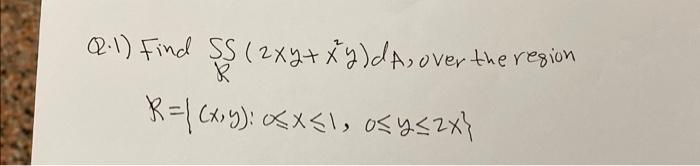 Q.1) Find ∬_R (2xy + x²y) dA, over the region
R = {(x,y): 0≤x≤1, 0≤y≤2x}